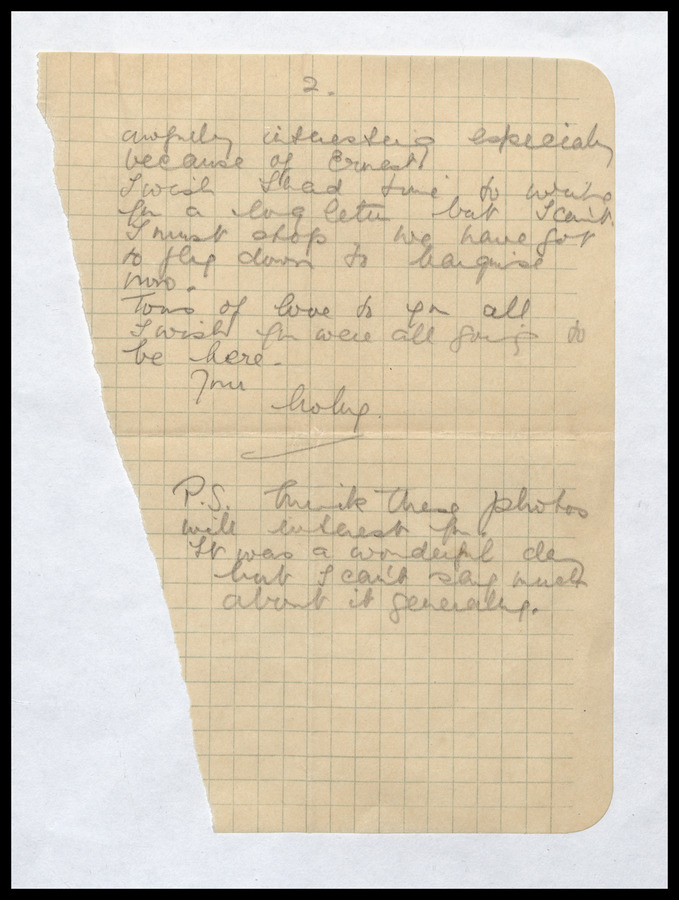 2.
awfully interesting especially
because of Ernest
I wish I had time to write
you a long letter but I can't
I must stop, we have got
to fly down to Marquise
now.
Tons of love to you all
I wish you were all going to
be here.
Your
P.S. think these photos
will interest you.
It was a wonderful day
but I can't say much
about it generally.